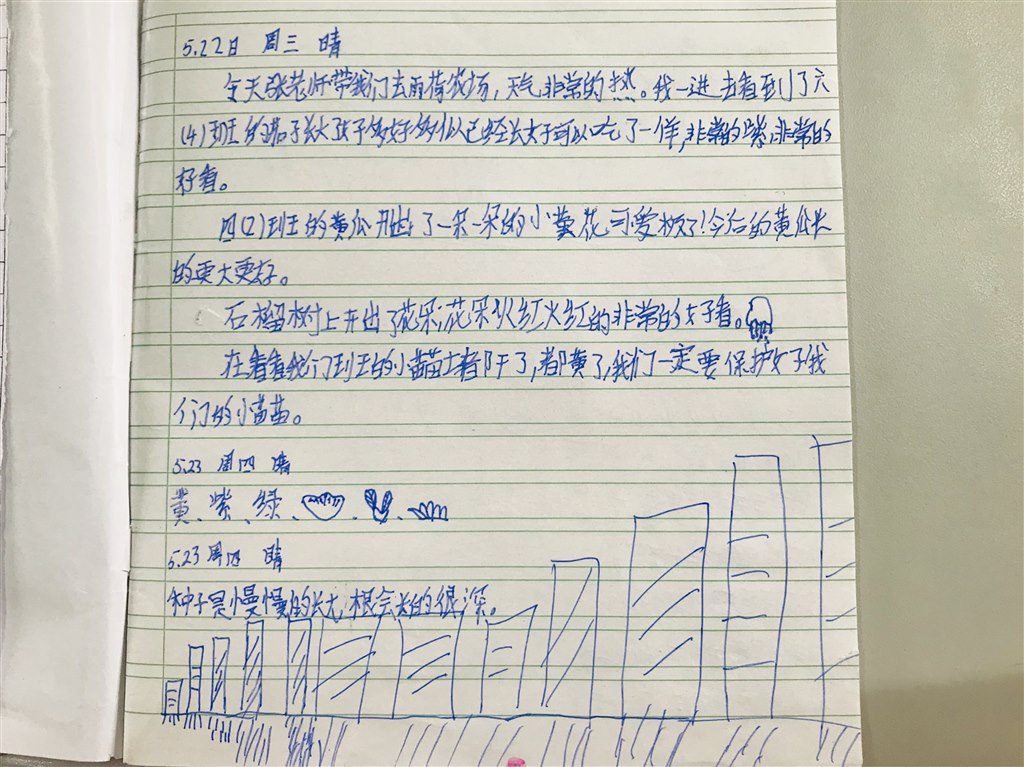 5.22日 周三 晴
今天张老师带我们去雨荷农场，天气非常的热。我一进去看到了六
(4)班的茄子长大了好多好多似已经长大于可以吃了一样，非常的紫，非常的
好看。
四(2)班的黄瓜开出了一朵一朵的小黄花可爱极了!今后的黄瓜长
的更大更好。
石榴树上开出了花朵，花朵火红火红的非常的好看。
在看看我们班的小苗苗都干了，都黄了，我们一定要保护好我
们的小苗苗。
5.23 周四 晴
黄、紫、绿、
5.23 周四 晴
种子是慢慢的长大，根会长的很深。